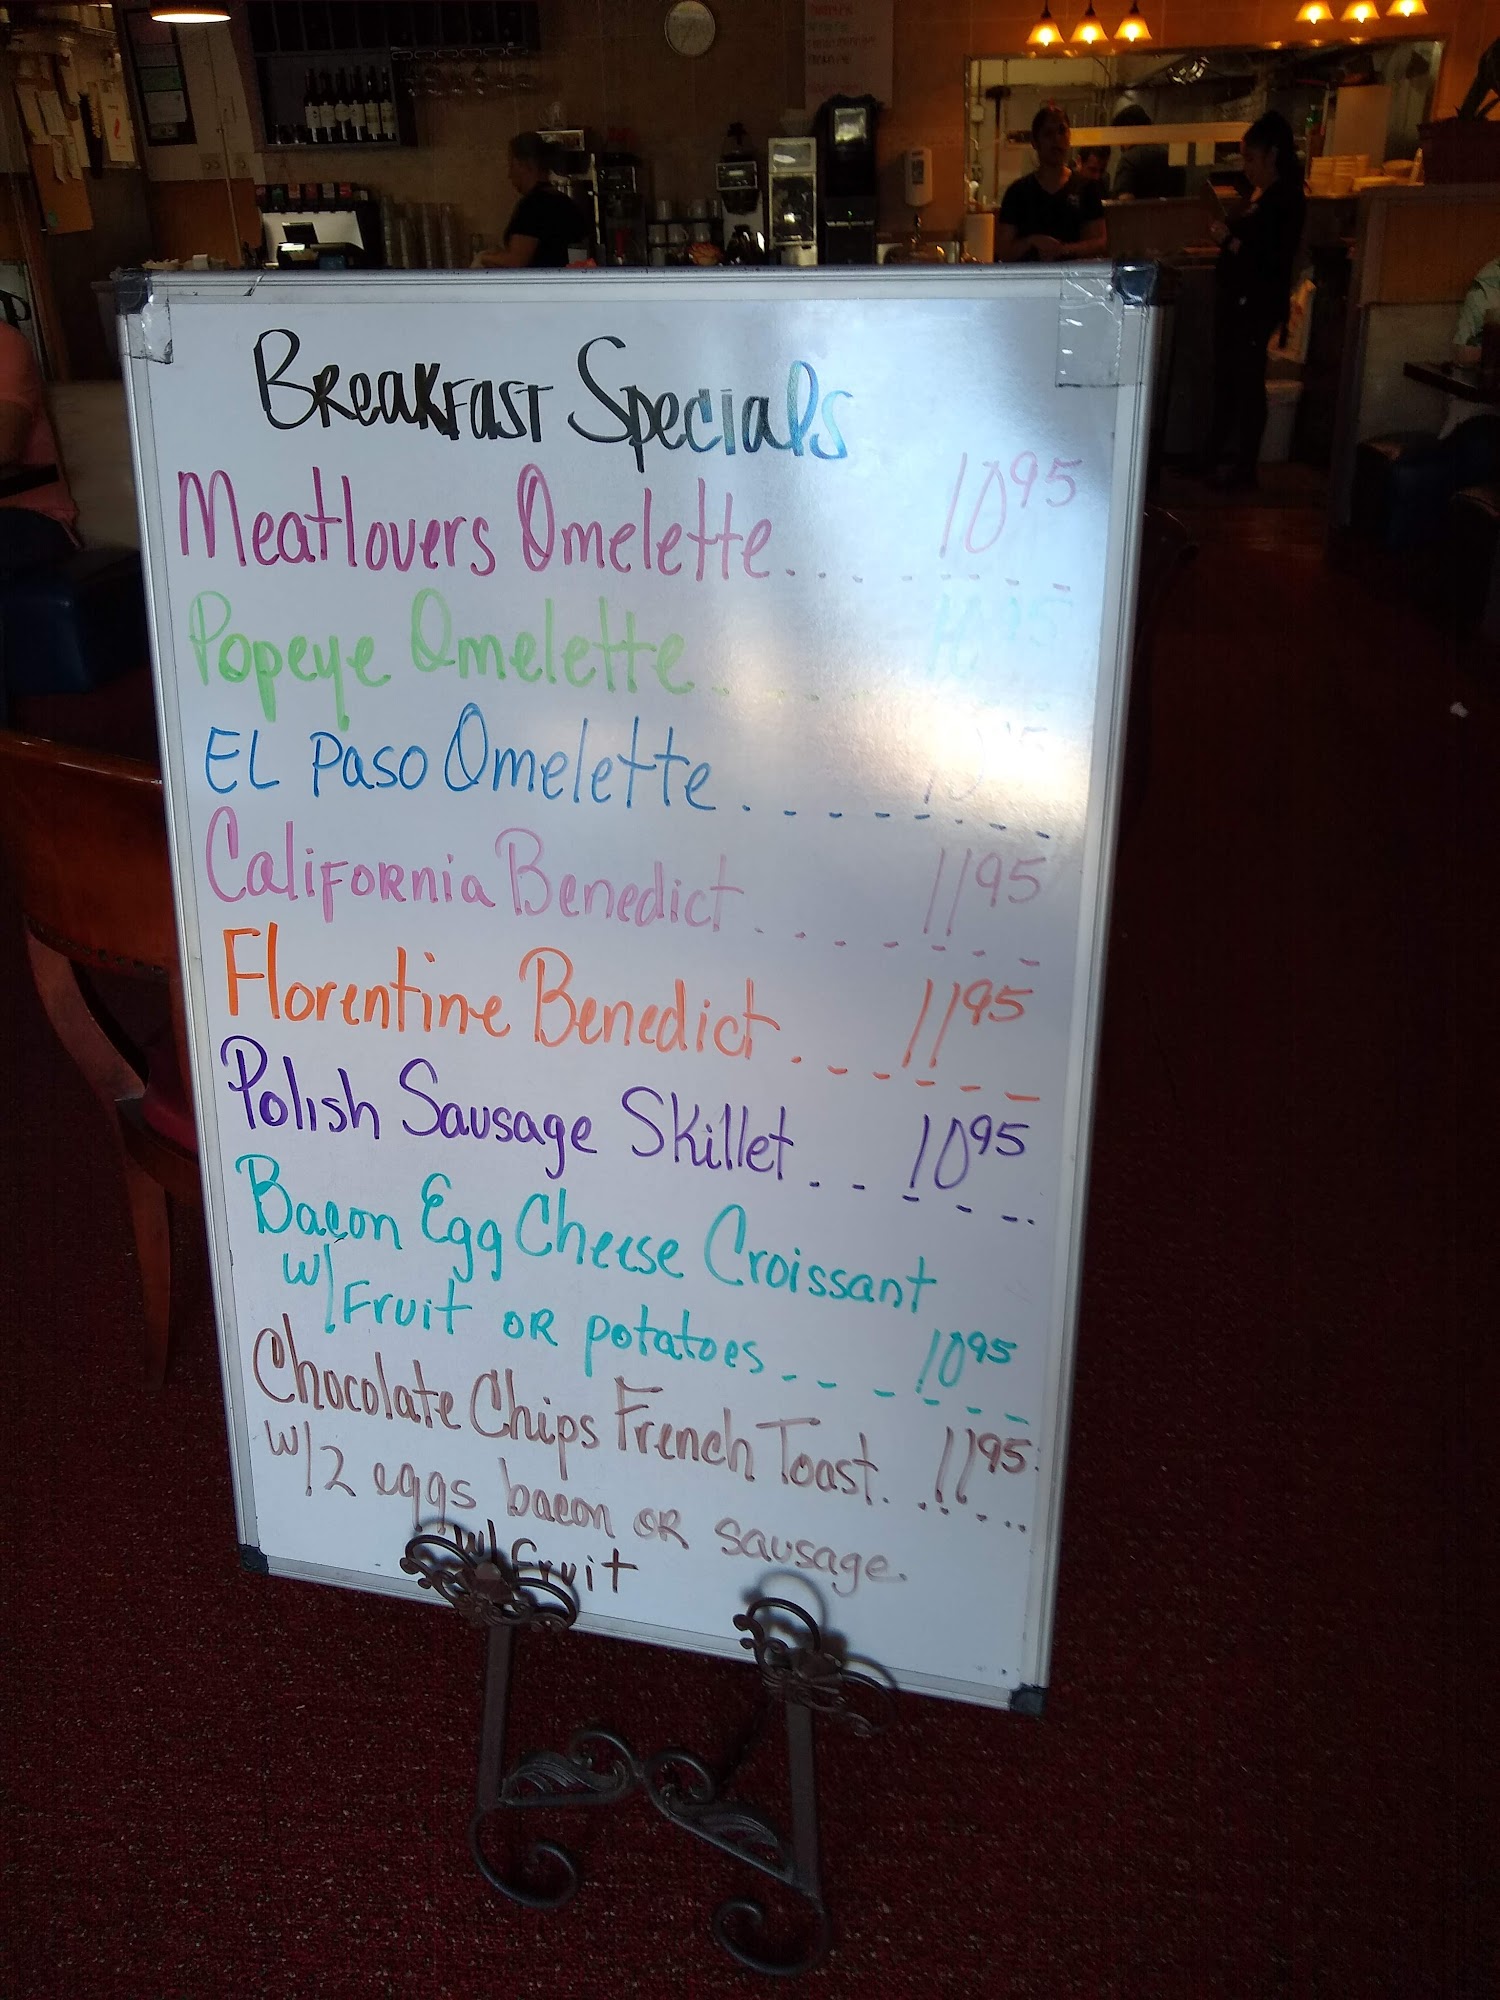 Breakfast Specials
Meatlovers Omelette........ 10 95
Popeye Omelette..... 10 95
EL Paso Omelette........ 10 95
California Benedict....... 11 95
Florentine Benedict...... 11 95
Polish Sausage Skillet..... 10 95
Bacon Egg Cheese Croissant
w/Fruit or potatoes...... 10 95
Chocolate Chips French Toast...... 11 95
w/2 eggs bacon or sausage.
w/ fruit